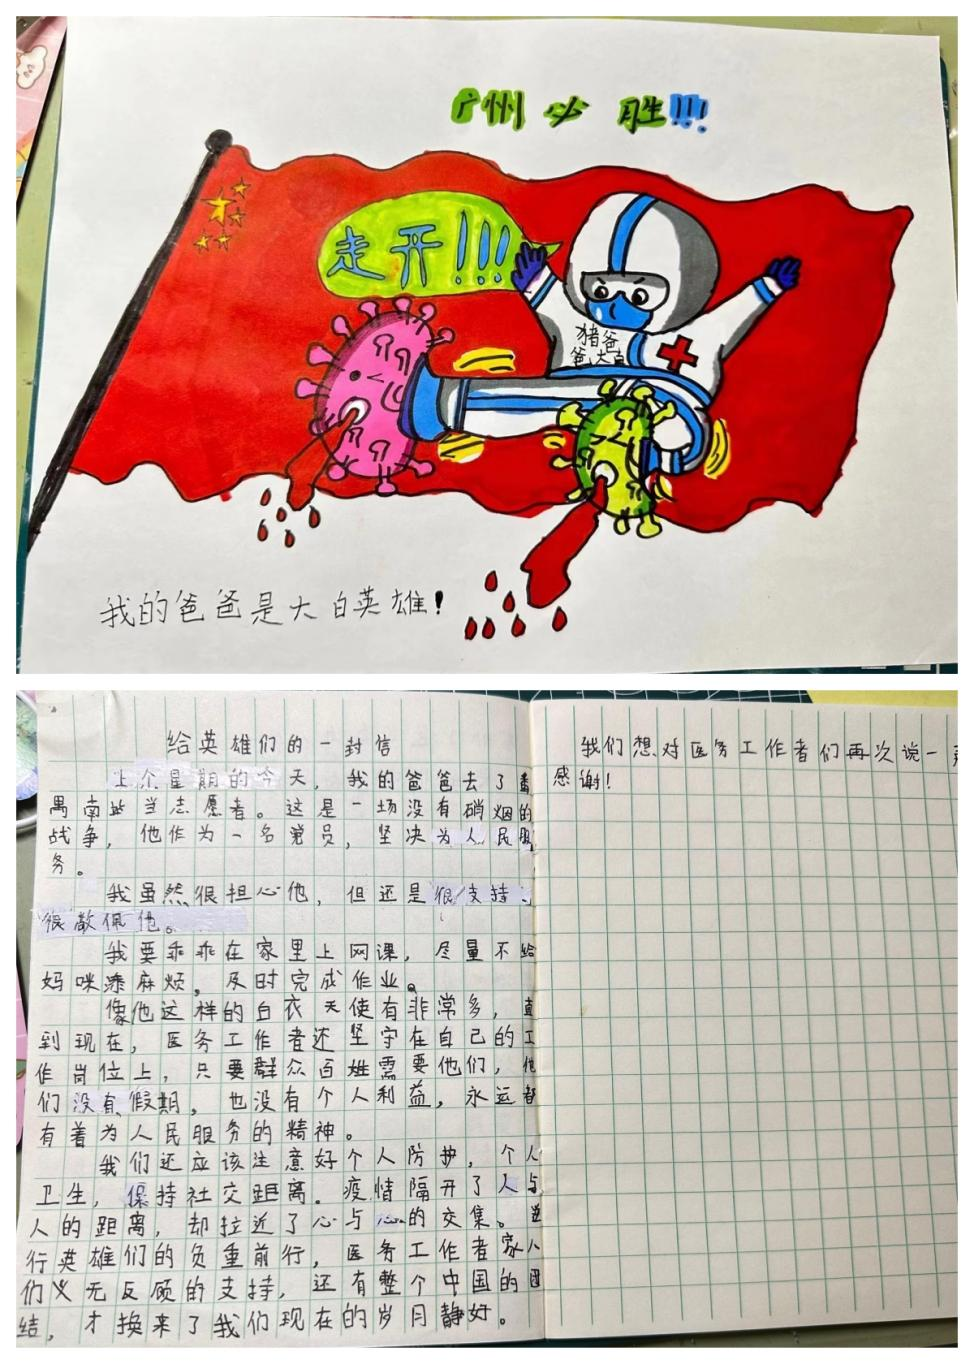 广州必胜!!!
走开!!!
猪爸
爸大白
我的爸爸是大白英雄!
给英雄们的一封信
上个星期的今天，我的爸爸去了番
禺南站当志愿者。这是一场没有硝烟的
战争，他作为一名党员，坚决为人民服
务。
我虽然很担心他，但还是很支持、
很敬佩他。
我要乖乖在家里上网课，尽量不给
妈咪添麻烦，及时完成作业。
像他这样的白衣天使有非常多，直
到现在，医务工作者还坚守在自己的工
作岗位上，只要群众百姓需要他们，他
们没有假期，也没有个人利益，永远都
有着为人民服务的精神。
我们还应该注意好个人防护，个人
卫生，保持社交距离。疫情隔开了人与
人的距离，却拉近了心与心的交集。
行英雄们的负重前行，医务工作者家人
们义无反顾的支持，还有整个中国的团
结，才换来了我们现在的岁月静好。
我们想对医务工作者们再次说一
感谢!